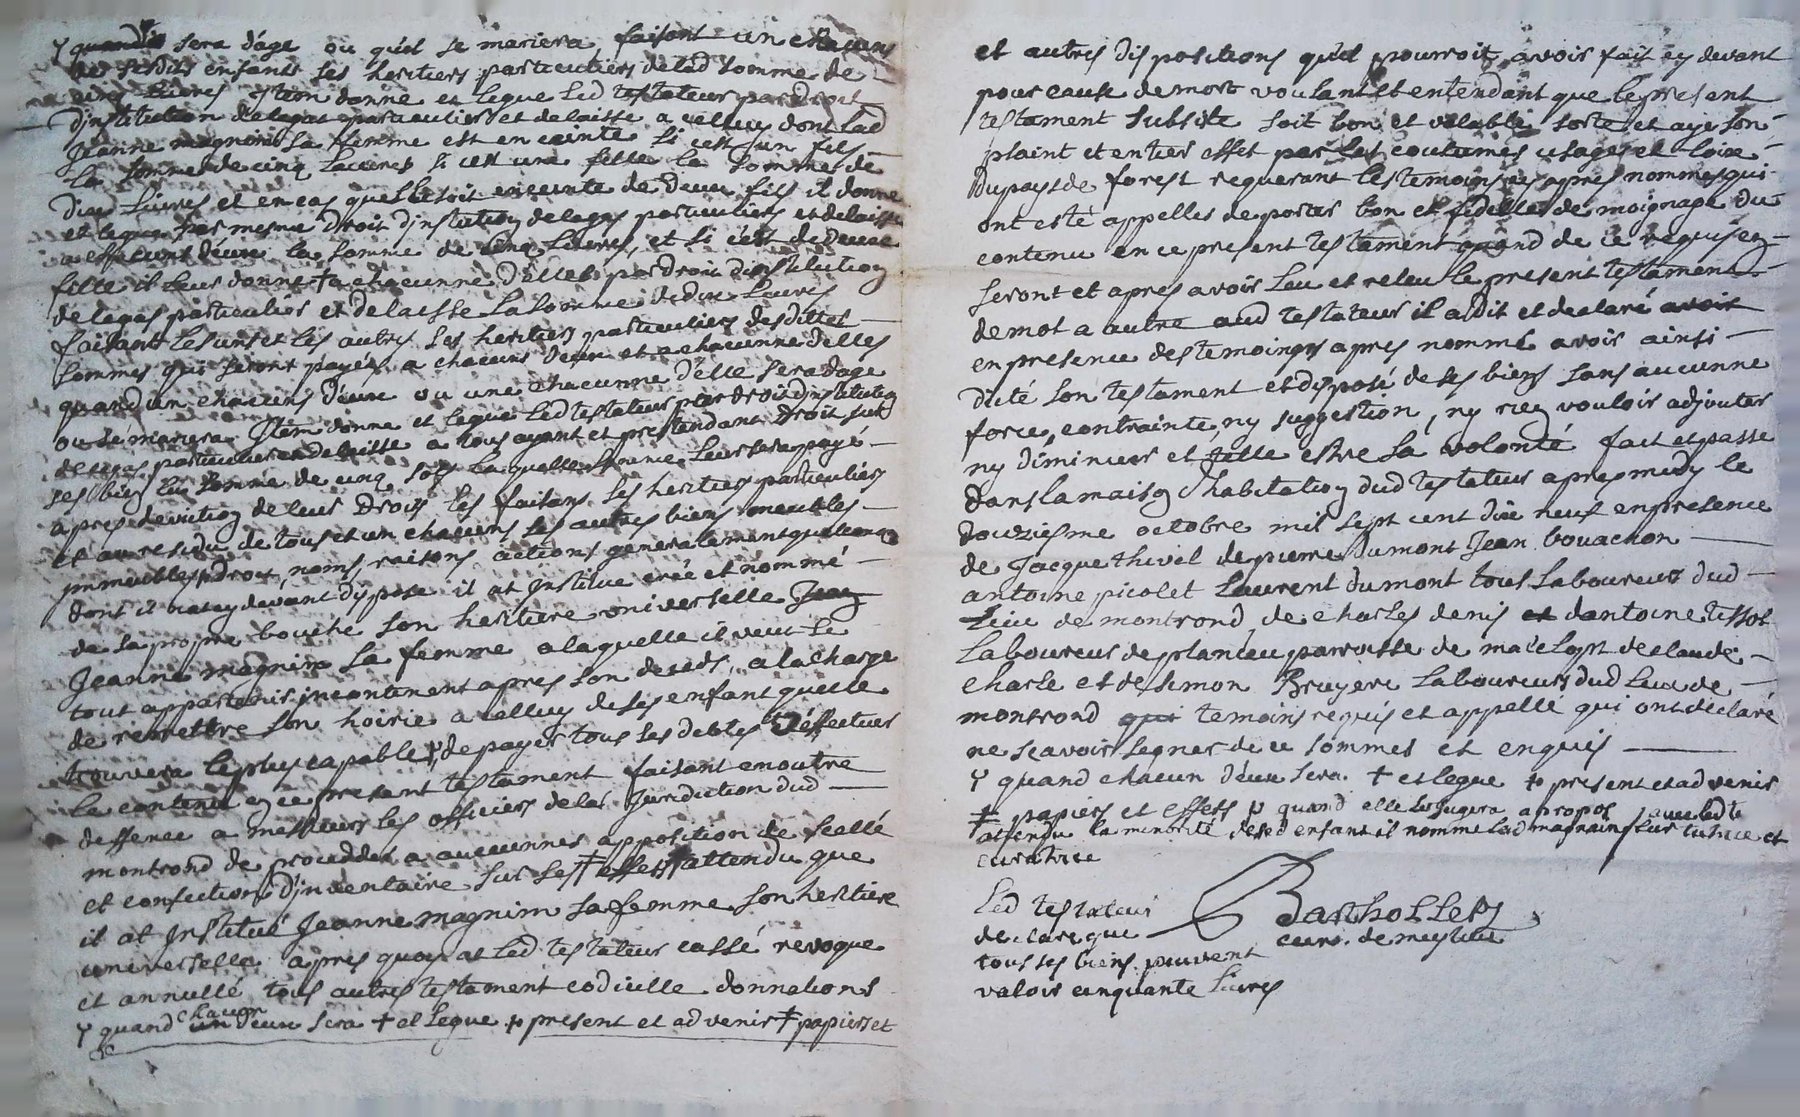 y quand il sera d'age ou quil se mariera, faisant un chacuns
de sesdits enfants ses heritiers particuliers de lad somme de
cinq livres Item donne et legue led testateur par droit
d'institution de legat particulier et delaisse a celluy dont lad
Jeanne magnin sa femme est enceinte si cest un fils
la somme de cinq livres si cest une fille la somme de
dix livres et en cas quelle soit enceinte de deux fils il donne
et legue par mesme droit d'institution de legas particuliers et delaisse
a chacuns d'eux la somme de cinq livres, et si c'est de deux
fille il leur donne + a chacunne d'elles par droit d'institution
de legas particulier et delaisse la somme de dix livres
faisant les uns et les autres ses heritiers particuliers desdittes
sommes qui seront payés a chacuns d'eux et a chacunne d'elles
quand un chacuns d'eux ou une chacunne d'elle sera d'age
ou se mariera Item donne et legue led testateur par droit d'institution
de legas particulier et delaisse a tous ayant et pretendant droit sur
ses biens la somme de cinq sols laquelle somme leur sera payé
apres de leur droit les faisans ses heritiers particuliers
et au residu de tous et un chacuns ses autres biens meubles
immeubles droit, noms, raisons, actions generalement quelconque
dont il n'a cy devant dispose il at Institue créé et nommé
de sa propre bouche son heritiere universelle
Jeanne magnin sa femme a laquelle il veut le
tout appartenir incontinent apres son deceds, a la charge
de remettre son hoirie a celluy de ses enfant quelle
trouvera le plus capable, de payer tous ses debtes d'effectuer
le contenu en ce present testament faisant en outre
deffence a messieurs les officiers de la Juridiction dud
montrond de procedder a aucunnes apposition de scellé
et confection d'inventaire sur ses ‡ effets attendu que
il at Institué Jeanne magnin sa femme son heritiere
universelle apres quoy at led testateur cassé revoque
et annullé tous autres testament codicille donnations
chacun
y quand un d'eux sera + et legue present et advenir ‡ papiers et
et autres dispositions quil pourroit avoir fait cy devant
pour cause de mort voulant et entendant que le present
testament subsiste soit bon et valable sorte et aye son
plaint et entier effet par les coutumes usages et loix
du pays de forest requerant les temoins cy apres nommés qui
ont esté appellés de porter bon et fidelle de moignage du
contenu en ce present testament quand de ce requis en
seront et apres avoir leu et releu le present testament
de mot a autre aud testateur il a dit et declaré avoir
en presence des temoings apres nommé avoir ainsi
dicté son testament et disposé de ses biens sans aucunne
force, contrainte, ny suggestion, ny rien vouloir adjouter
ny diminuer et telle estre sa volonté fait et passé
dans la maison d'habitation dud testateur apres midy le
douziesme octobre mil sept cent dix neuf en presence
de Jacque thivel de pierre dumont Jean bouachon
antoine picolet Laurent dumont tous laboureurs dud
lieu de montrond, de charles denis et dantoine tissot
laboureur de planieu parroisse de de claude
charle et de simon Bruyere laboureurs dud lieu de
montrond qui temoins requis et appellé qui ont declaré
ne scavoir signer de ce sommes et enquis
y quand chacun d'eux sera. + et legue present et advenir
‡ papiers et effets quand elle le Jugera apropos
attendu la minorité desd enfant il nomme lad magnin leur tutrice et
curatrice
Led testateur
declare que
tous ses biens peuvent
valoir cinquante livres
Barthollet
curé de